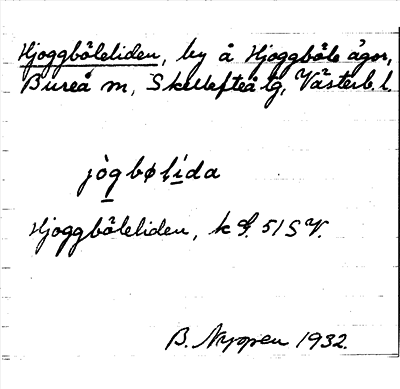 Hjoggböleliden, by å Hjoggböle ägor,
Bureå m, Skellefteå tg, Västerb. l.
jògbølída
Hjoggböleliden, k 51 SV.
B. Nygren 1932.